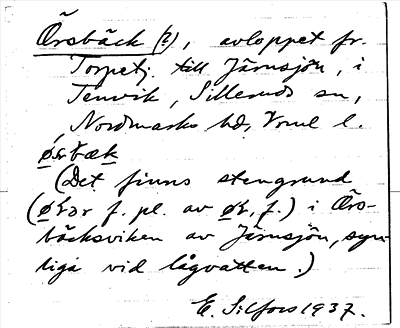 Örsbäck (?), avloppet fr.
Torpetj. till Järnsjön, i
Tenvik, Silleruds sn,
Nordmarks hd, Vrml l.
ørbæk
(Det finns stengrund
(ørar f. pl. av ør, f.) i Örs-
bäcksviken av Järnsjön, syn-
liga vid lågvatten.)
E. Silfors 1937.